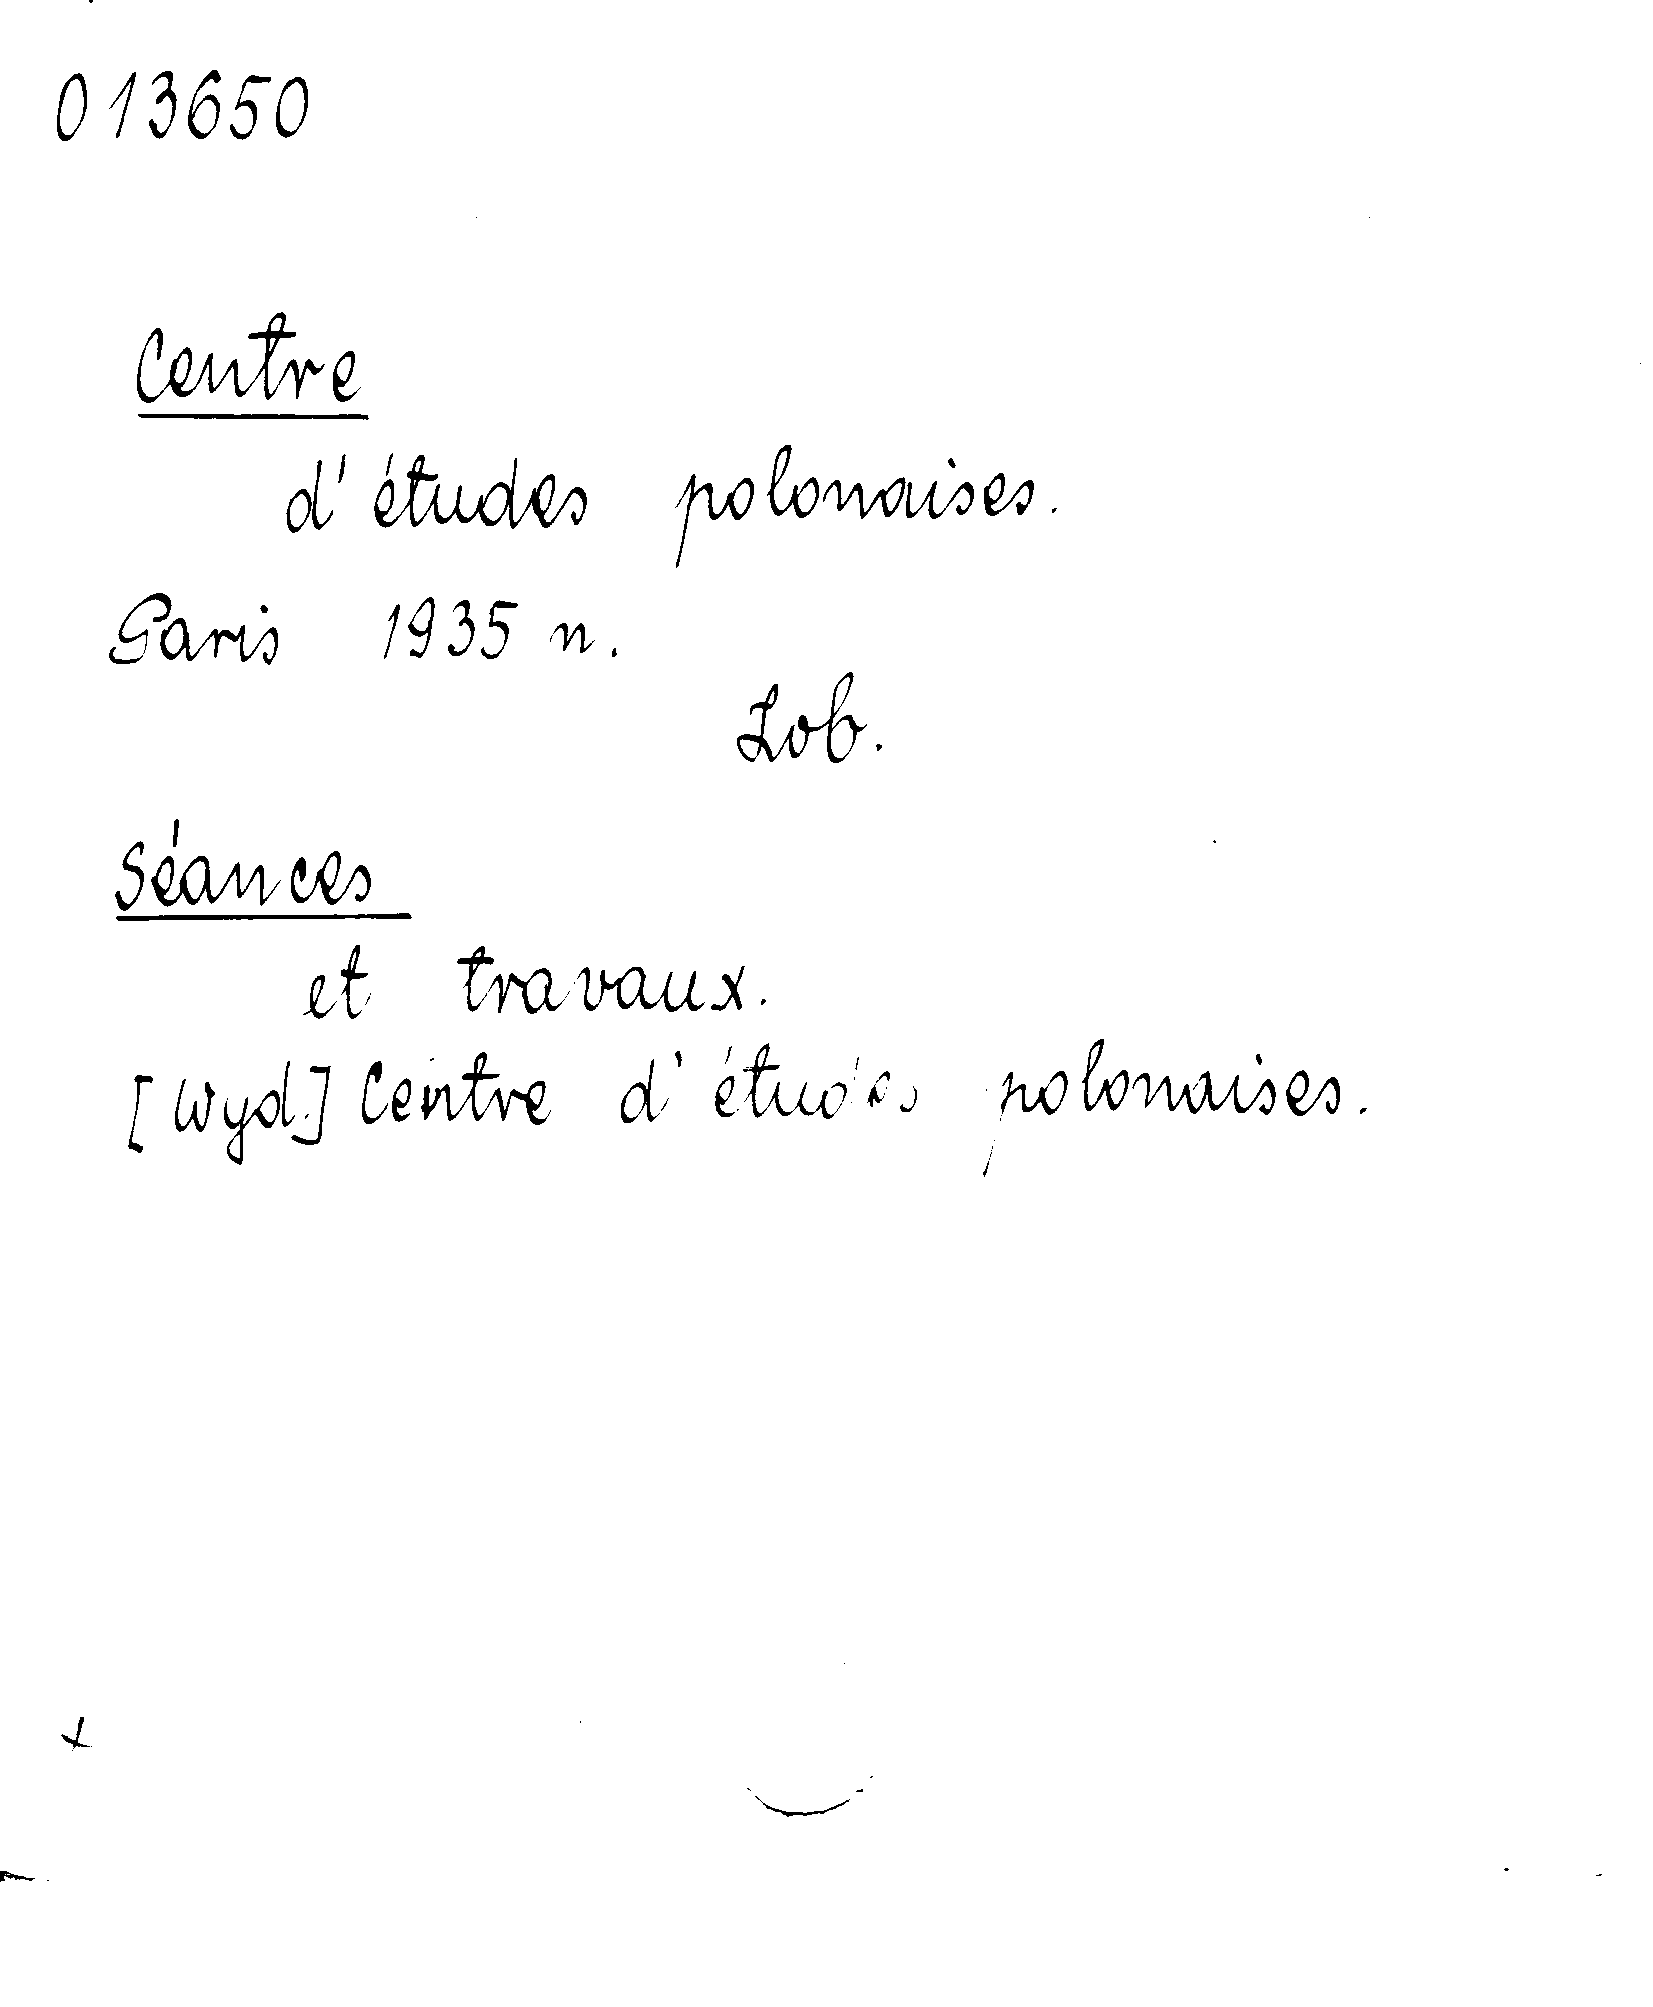 013650
Centre
d'études polonaises.
Paris 1935 n.
Zob.
Séances
et travaux.
[Wyd.] Centre d'études polonaises.
+